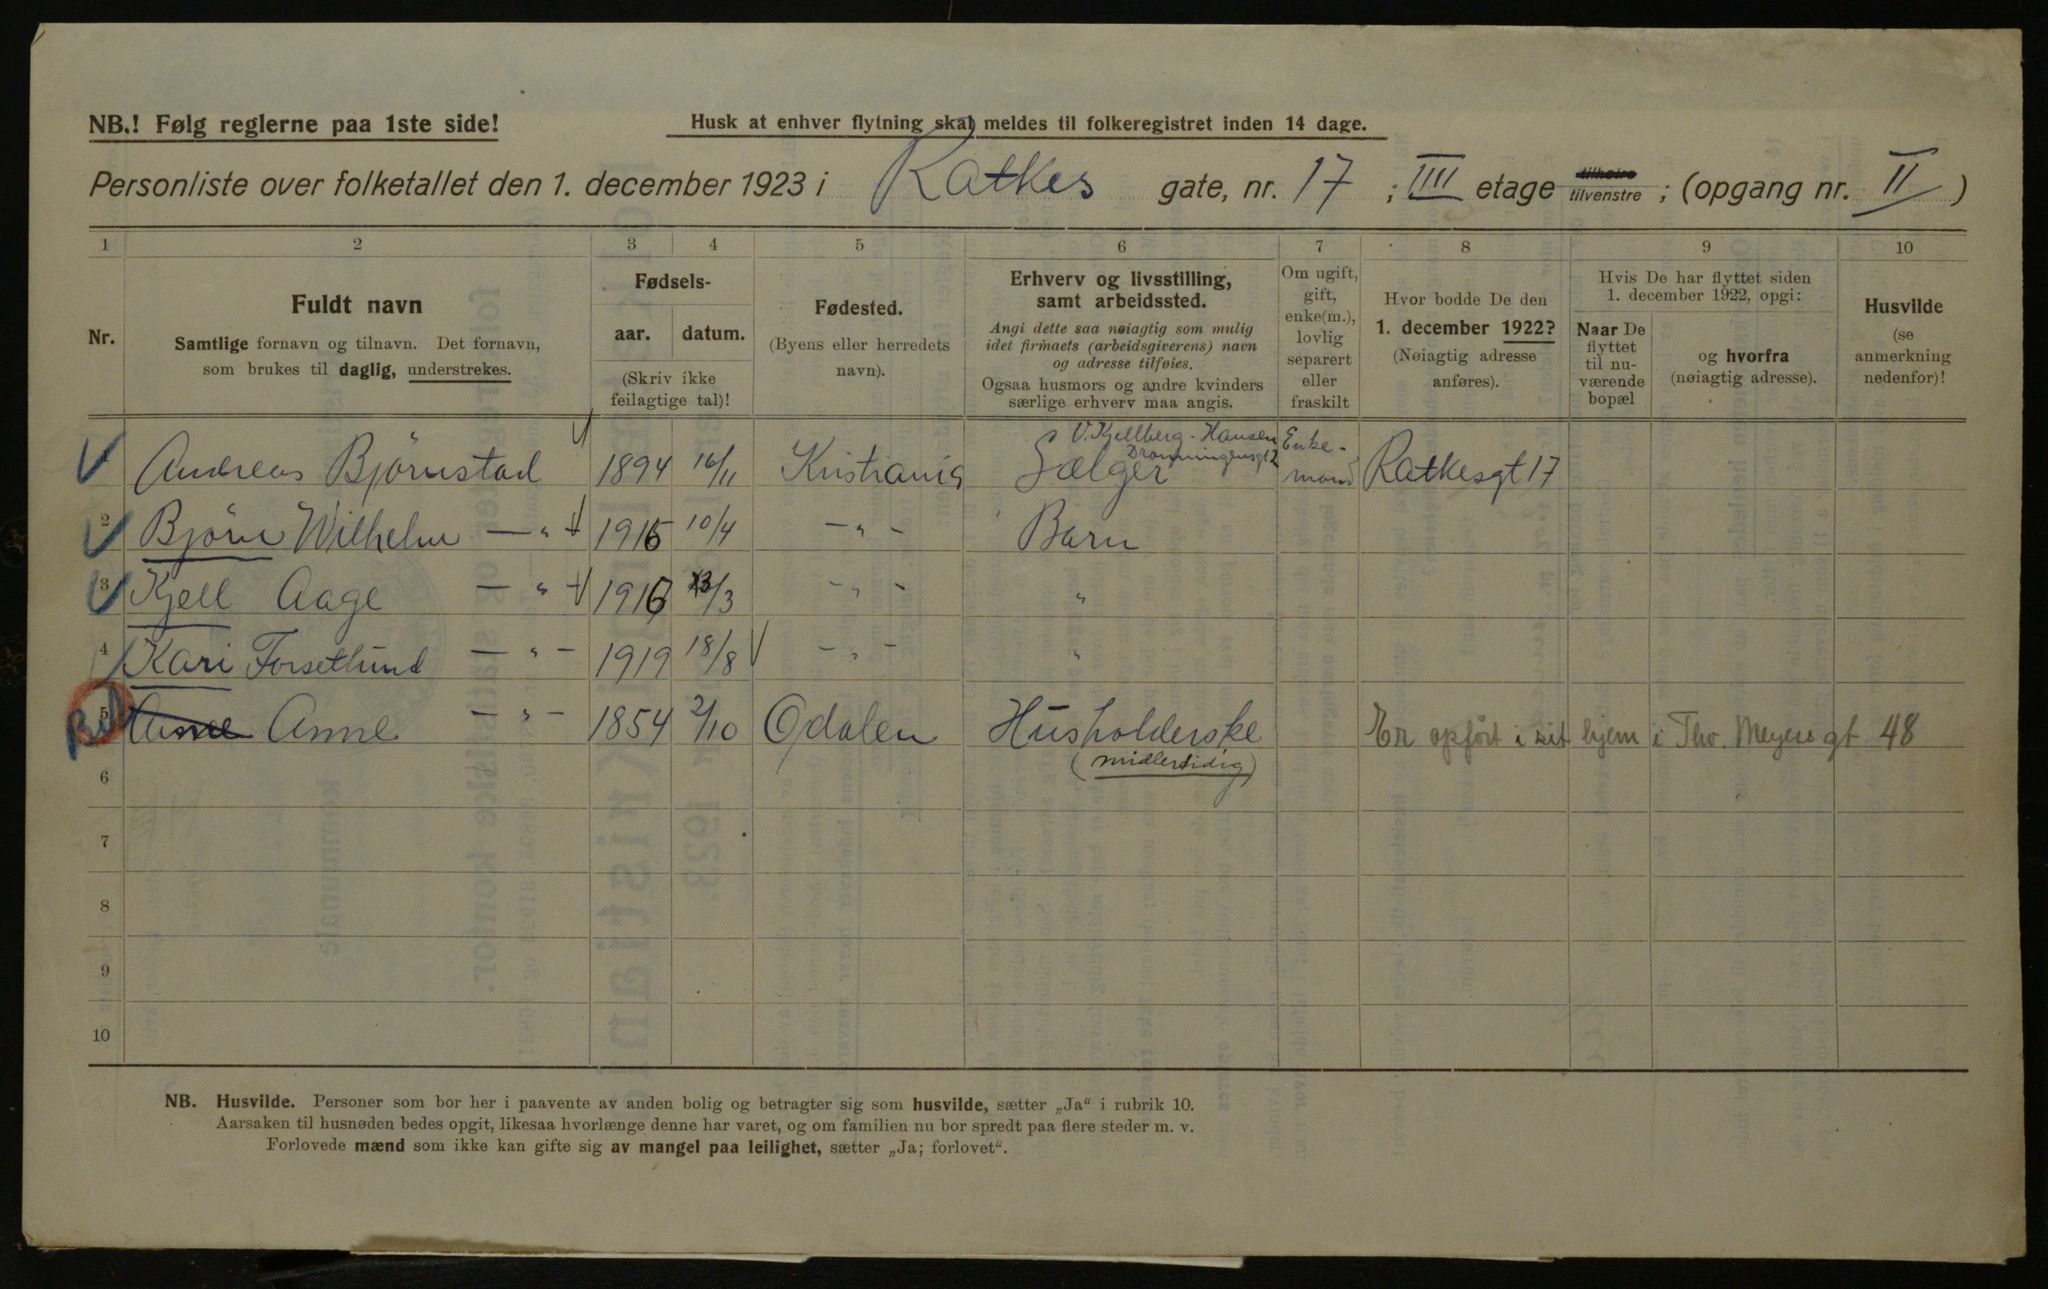 NB.! Følg reglerne paa 1ste side!
Husk at enhver flytning skal meldes til folkeregistret inden 14 dage.
Personliste over folketallet den 1. december 1923 i Ratkes gate, nr. 17 ; III etage tilhøire tilvenstre ; (opgang nr. II )
1 2 3 4 5 6 7 8 9 10
Nr.
Fuldt navn
Samtlige fornavn og tilnavn. Det fornavn,
som brukes til daglig, understrekes.
Fødsels-
aar. datum.
(Skriv ikke
feilagtige tal)!
Fødested.
(Byens eller herredets
navn).
Erhverv og livsstilling,
samt arbeidssted.
Angi dette saa nøiagtig som mulig
idet firmaets (arbeidsgiverens) navn
og adresse tilføies.
Ogsaa husmors og andre kvinders
særlige erhverv maa angis.
Om ugift,
gift,
enke(m.),
lovlig
separert
eller
fraskilt
Hvor bodde De den
1. december 1922?
(Nøiagtig adresse
anføres).
Hvis De har flyttet siden
1. december 1922, opgi:
Naar De
flyttet
til nu-
værende
bopæl
og hvorfra
(nøiagtig adresse).
Husvilde
(se
anmerkning
nedenfor)!
V. Kjellberg-Hansen
Dronningensgt 2
Andreas Björnstad 1894 16/11 Kristiania Sælger Enke-mand Ratkesgt 17
2 Björn Wilhelm — " — 1915 10/4 — " — Barn
3 Kjell Aage — " — 1916 23/3 — " — "
4 Kari Forsetlund — " — 1919 18/8 — " — "
5 Anne Anne — " — 1854 2/10 Odalen Husholderske Er opført i sit hjem i Thv. Meyers gt 48
(midlertidig)
6
7
8
9
10
NB. Husvilde. Personer som bor her i paavente av anden bolig og betragter sig som husvilde, sætter „Ja“ i rubrik 10.
Aarsaken til husnøden bedes opgit, likesaa hvorlænge denne har varet, og om familien nu bor spredt paa flere steder m. v.
Forlovede mænd som ikke kan gifte sig av mangel paa leilighet, sætter „Ja; forlovet“.